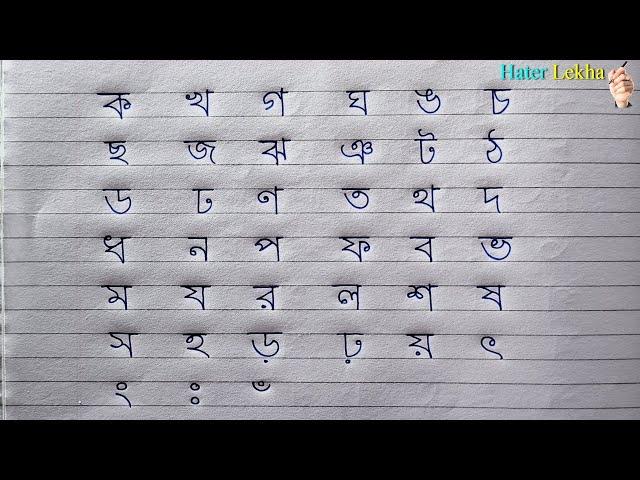 Hater Lekha
ক খ গ ঘ ঙ চ
ছ জ ঝ ঞ ট ঠ
ড ঢ ণ ত থ দ
ধ ন প ফ ব ভ
ম য র ল শ ষ
স হ ড় ঢ় য় ৎ
ং ঃ ঁ